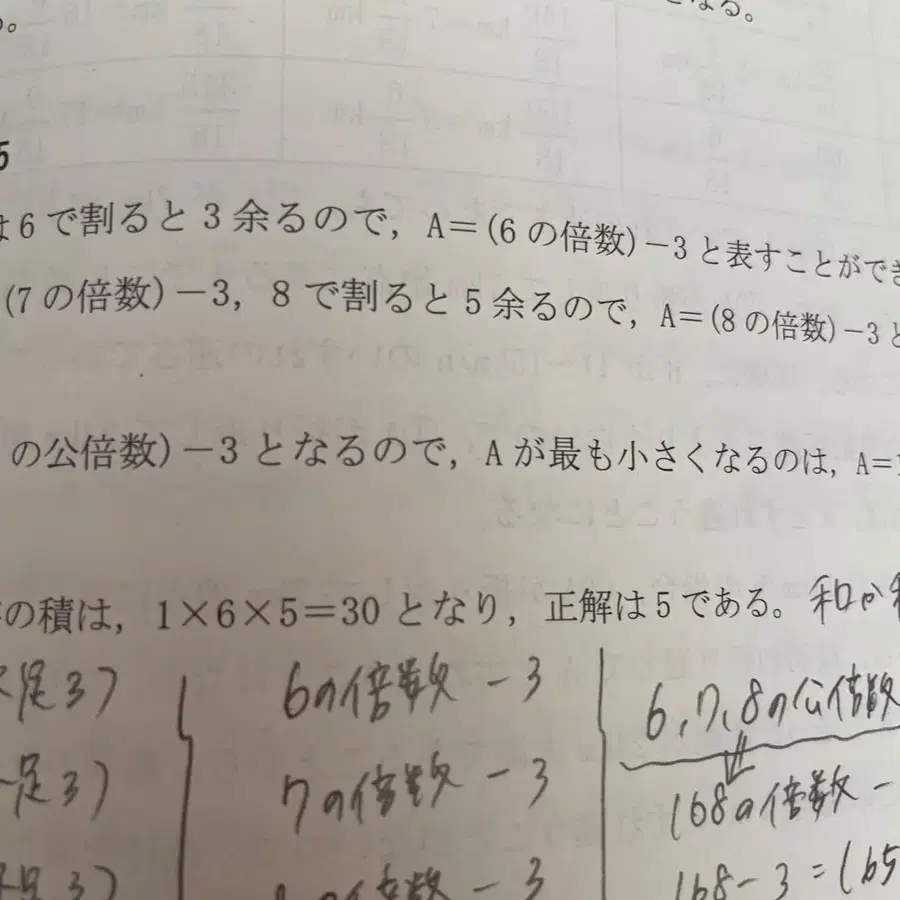 。
となる。
5
は6で割ると3余るので，A＝(6の倍数)－3と表すことができ
(7の倍数)－3，8で割ると5余るので，A＝(8の倍数)－3と
の公倍数)－3となるので，Aが最も小さくなるのは，A＝1
の積は，1×6×5＝30となり，正解は5である。和か
足3)
6の倍数－3
6,7,8の公倍数
足3)
7の倍数－3
168の倍数－
足3)
の倍数－3
168－3＝165